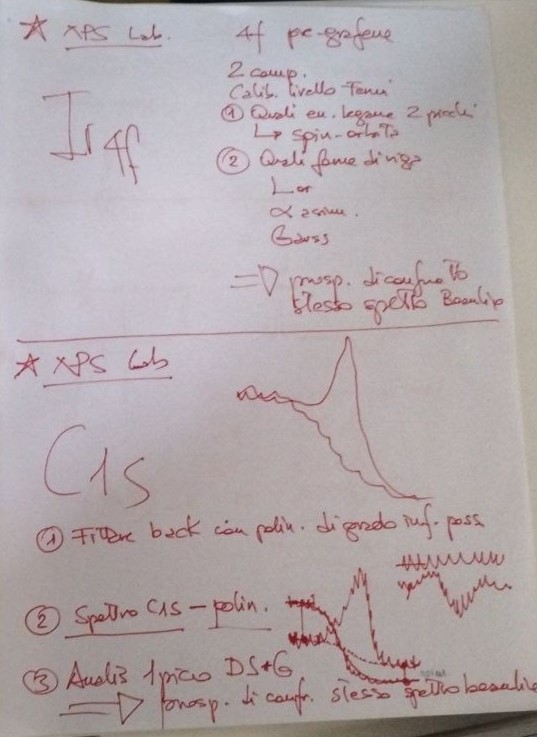 ☆ XPS Lab.
4f pre-grafene
Ir 4f
2 comp.
Calib. livello Fermi
① Quali en. legame 2 picchi
↳ spin-orbita
② Quali forme di riga
Lor
α asim.
Gauss
⇒ prosp. di confronto
stesso spettro Beamline
☆ XPS Lab
C1s
① Fittare back con polin. di grado inf. poss.
② Spettro C1s - polin.
③ Analisi 1 picco DS+G
⇒ prosp. di confr. stesso spettro beamline